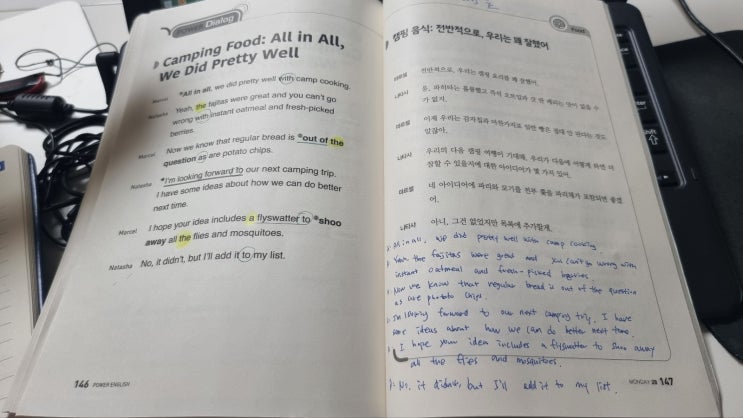 POWER Dialog
Camping Food: All in All,
We Did Pretty Well
Marcel
*All in all, we did pretty well with camp cooking.
Natasha
Yeah, the fajitas were great and you can't go
wrong with instant oatmeal and fresh-picked
berries.
Marcel
Now we know that regular bread is *out of the
question as are potato chips.
Natasha
*I'm looking forward to our next camping trip.
I have some ideas about how we can do better
next time.
Marcel
I hope your idea includes a flyswatter to *shoo
away all the flies and mosquitoes.
Natasha
No, it didn't, but I'll add it to my list.
146 POWER ENGLISH
Food
캠핑 음식: 전반적으로, 우리는 꽤 잘했어
마르셀
전반적으로, 우리는 캠핑 요리를 꽤 잘했어.
나타샤
응, 파히타는 훌륭했고 즉석 오트밀과 갓 딴 베리는 맛이 없을 수
가 없지.
마르셀
이제 우리는 감자칩과 마찬가지로 일반 빵은 절대 안 된다는 것도
있잖아.
나타샤
우리의 다음 캠핑 여행이 기대돼. 우리가 다음에 어떻게 하면 더
잘할 수 있을지에 대한 아이디어가 몇 가지 있어.
마르셀
네 아이디어에 파리와 모기를 전부 쫓을 파리채가 포함되면 좋겠
어.
나타샤
아니, 그건 없었지만 목록에 추가할게.
All in all, we did pretty well with camp cooking
Yeah the fajitas were great and you can't go wrong with
instant oatmeal and fresh-picked
Now we know that regular bread is out of the question
as are photato chips.
I'm looking forward to our next camping trip. I have
some ideas about how we can do better next time.
I hope your idea includes a flyswatter to shoo away
all the flies and mosquitoes.
No, it didn't, but I'll add it to my list.
MONDAY 147
Shift